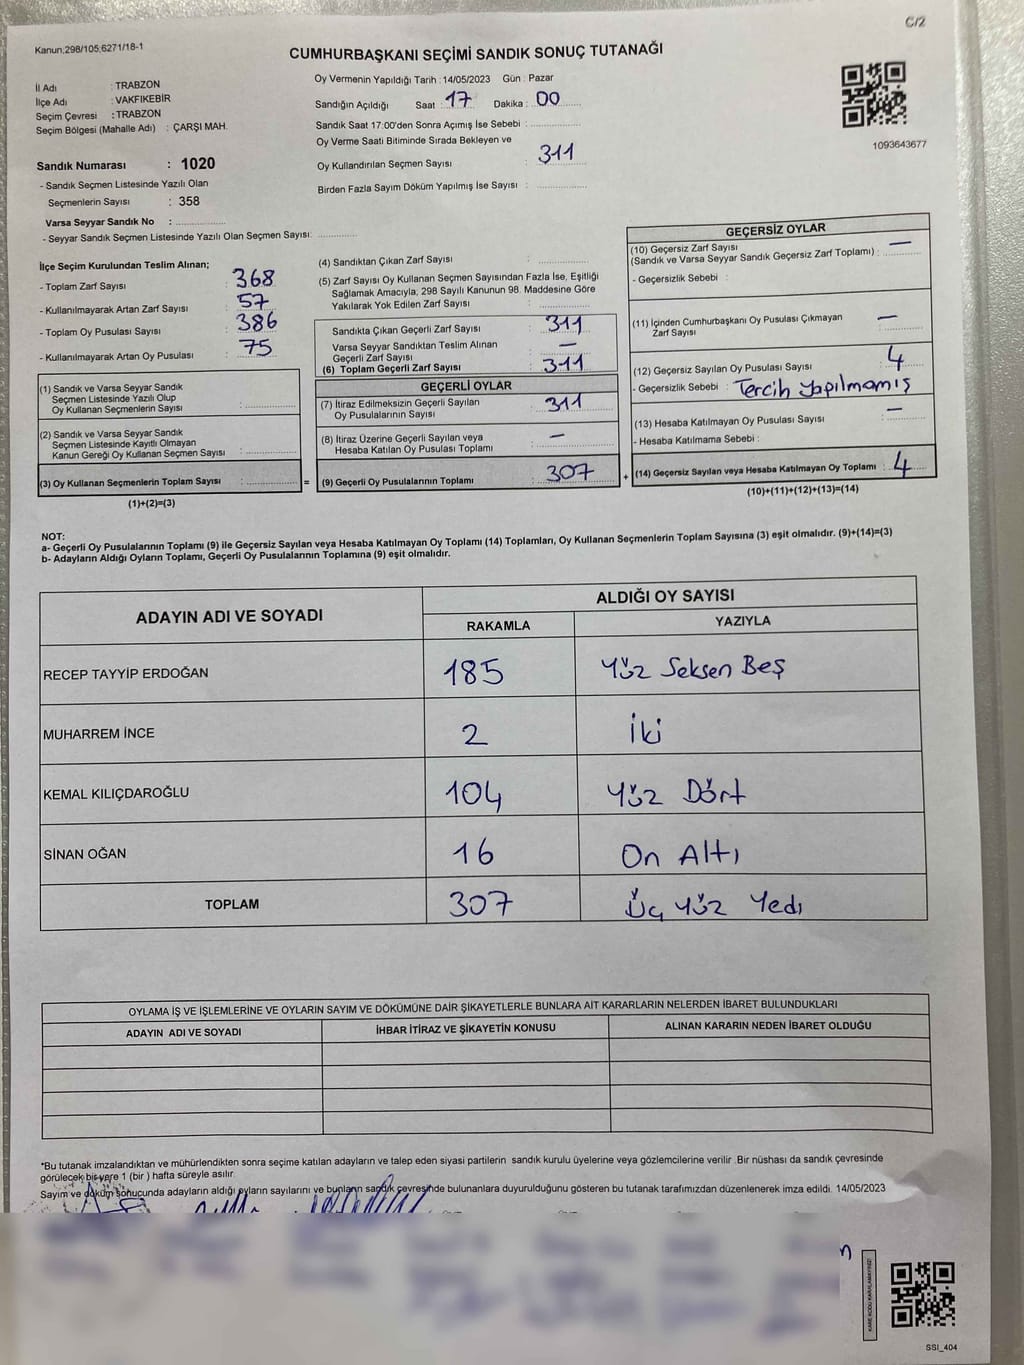 C/2
Kanun;298/105;6271/18-1
CUMHURBAŞKANI SEÇİMİ SANDIK SONUÇ TUTANAĞI
İl Adı : TRABZON
İlçe Adı : VAKFIKEBİR
Seçim Çevresi : TRABZON
Seçim Bölgesi (Mahalle Adı) : ÇARŞI MAH.
Sandık Numarası : 1020
- Sandık Seçmen Listesinde Yazılı Olan
Seçmenlerin Sayısı : 358
Varsa Seyyar Sandık No :
- Seyyar Sandık Seçmen Listesinde Yazılı Olan Seçmen Sayısı:
Oy Vermenin Yapıldığı Tarih : 14/05/2023 Gün : Pazar
Sandığın Açıldığı Saat : 17 Dakika : 00
Sandık Saat 17:00'den Sonra Açımış İse Sebebi :
Oy Verme Saati Bitiminde Sırada Bekleyen ve
Oy Kullandırılan Seçmen Sayısı : 311
Birden Fazla Sayım Döküm Yapılmış İse Sayısı :
1093643677
İlçe Seçim Kurulundan Teslim Alınan;
- Toplam Zarf Sayısı : 368
- Kullanılmayarak Artan Zarf Sayısı : 57
- Toplam Oy Pusulası Sayısı : 386
- Kullanılmayarak Artan Oy Pusulası : 75
(1) Sandık ve Varsa Seyyar Sandık
Seçmen Listesinde Yazılı Olup
Oy Kullanan Seçmenlerin Sayısı :
(2) Sandık ve Varsa Seyyar Sandık
Seçmen Listesinde Kayıtlı Olmayan
Kanun Gereği Oy Kullanan Seçmen Sayısı :
(3) Oy Kullanan Seçmenlerin Toplam Sayısı :
(1)+(2)=(3)
(4) Sandıktan Çıkan Zarf Sayısı :
(5) Zarf Sayısı Oy Kullanan Seçmen Sayısından Fazla İse, Eşitliği
Sağlamak Amacıyla; 298 Sayılı Kanunun 98. Maddesine Göre
Yakılarak Yok Edilen Zarf Sayısı :
Sandıkta Çıkan Geçerli Zarf Sayısı : 311
Varsa Seyyar Sandıktan Teslim Alınan
Geçerli Zarf Sayısı : —
(6) Toplam Geçerli Zarf Sayısı : 311
GEÇERLİ OYLAR
(7) İtiraz Edilmeksizin Geçerli Sayılan
Oy Pusulalarının Sayısı : 311
(8) İtiraz Üzerine Geçerli Sayılan veya
Hesaba Katılan Oy Pusulası Toplamı : —
= (9) Geçerli Oy Pusulalarının Toplamı : 307 +
GEÇERSİZ OYLAR
(10) Geçersiz Zarf Sayısı
(Sandık ve Varsa Seyyar Sandık Geçersiz Zarf Toplamı) : —
- Geçersizlik Sebebi :
(11) İçinden Cumhurbaşkanı Oy Pusulası Çıkmayan
Zarf Sayısı : —
(12) Geçersiz Sayılan Oy Pusulası Sayısı : 4
- Geçersizlik Sebebi : Tercih Yapılmamış
(13) Hesaba Katılmayan Oy Pusulası Sayısı : —
- Hesaba Katılmama Sebebi :
(14) Geçersiz Sayılan veya Hesaba Katılmayan Oy Toplamı : 4
(10)+(11)+(12)+(13)=(14)
NOT:
a- Geçerli Oy Pusulalarının Toplamı (9) ile Geçersiz Sayılan veya Hesaba Katılmayan Oy Toplamı (14) Toplamları, Oy Kullanan Seçmenlerin Toplam Sayısına (3) eşit olmalıdır. (9)+(14)=(3)
b- Adayların Aldığı Oyların Toplamı, Geçerli Oy Pusulalarının Toplamına (9) eşit olmalıdır.
ADAYIN ADI VE SOYADI ALDIĞI OY SAYISI
RAKAMLA YAZIYLA
RECEP TAYYİP ERDOĞAN 185 Yüz Seksen Beş
MUHARREM İNCE 2 İki
KEMAL KILIÇDAROĞLU 104 Yüz Dört
SİNAN OĞAN 16 On Altı
TOPLAM 307 Üç Yüz Yedi
OYLAMA İŞ VE İŞLEMLERİNE VE OYLARIN SAYIM VE DÖKÜMÜNE DAİR ŞİKAYETLERLE BUNLARA AİT KARARLARIN NELERDEN İBARET BULUNDUKLARI
ADAYIN ADI VE SOYADI İHBAR İTİRAZ VE ŞİKAYETİN KONUSU ALINAN KARARIN NEDEN İBARET OLDUĞU
*Bu tutanak imzalandıktan ve mühürlendikten sonra seçime katılan adayların ve talep eden siyasi partilerin sandık kurulu üyelerine veya gözlemcilerine verilir .Bir nüshası da sandık çevresinde
görülecek bir yere 1 (bir ) hafta süreyle asılır.
Sayım ve döküm sonucunda adayların aldığı oyların sayılarını ve bunların sandık çevresinde bulunanlara duyurulduğunu gösteren bu tutanak tarafımızdan düzenlenerek imza edildi. 14/05/2023
n
KARE KODU KARALAMAYINIZ!
SSI_404